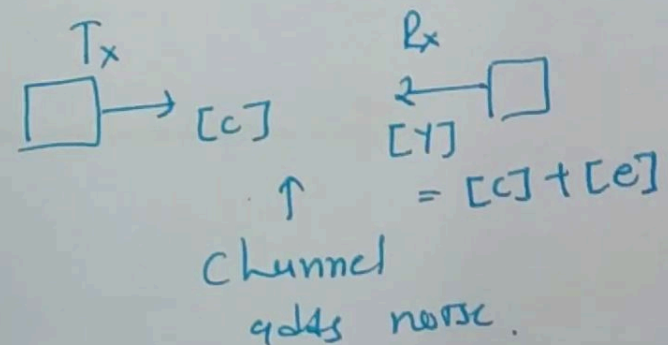 Tx
Rx
[c]
[Y]
= [c] + [e]
Channel
adds noise.